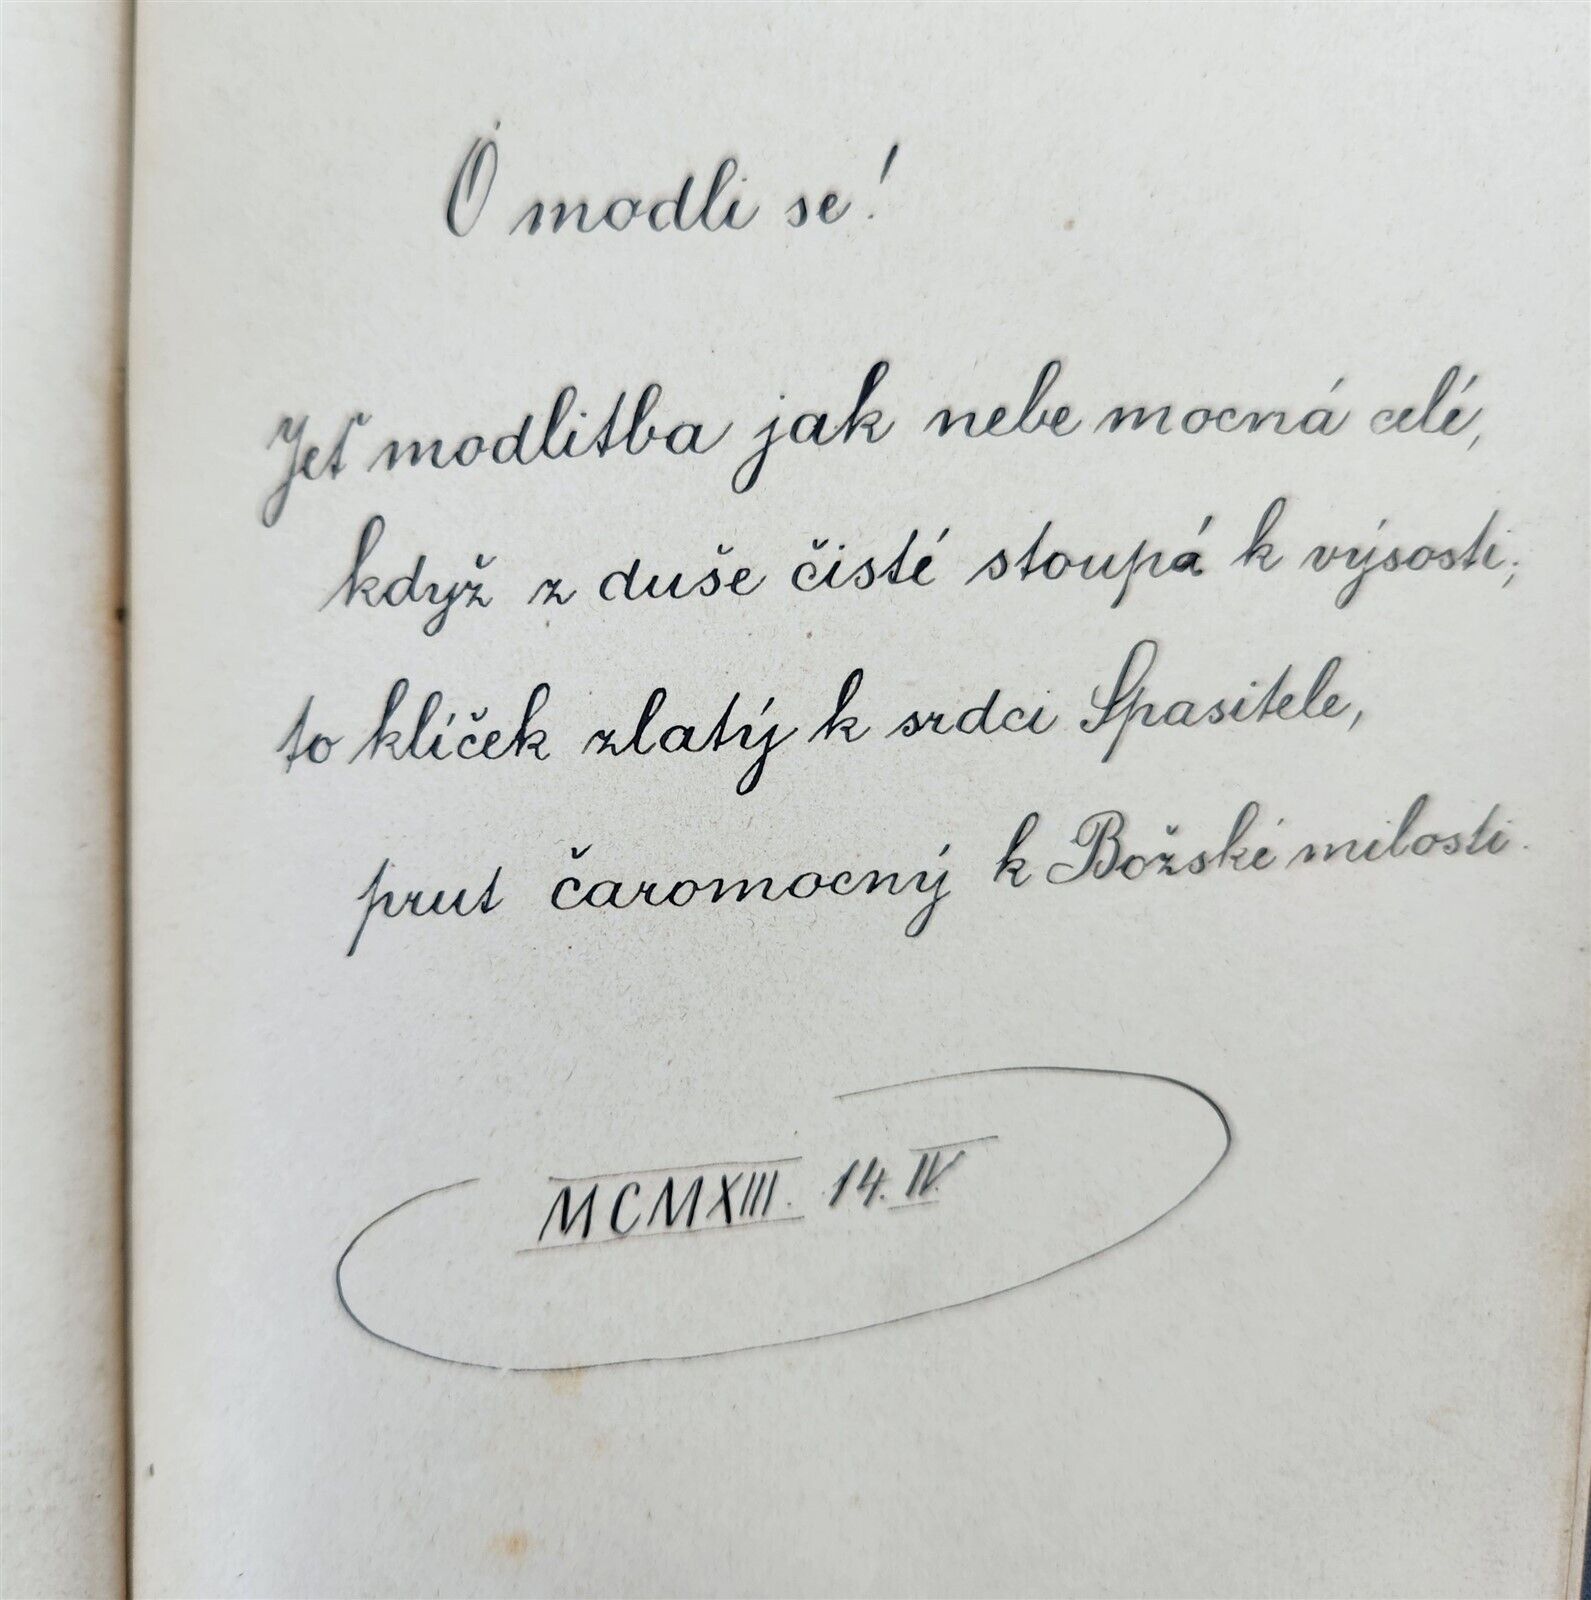 Ó modli se!
Jeť modlitba jak nebe mocná celé,
když z duše čisté stoupá k výsosti;
to klíček zlatý k srdci Spasitele,
prut čaromocný k Božské milosti.
MCMXIII. 14. IV.